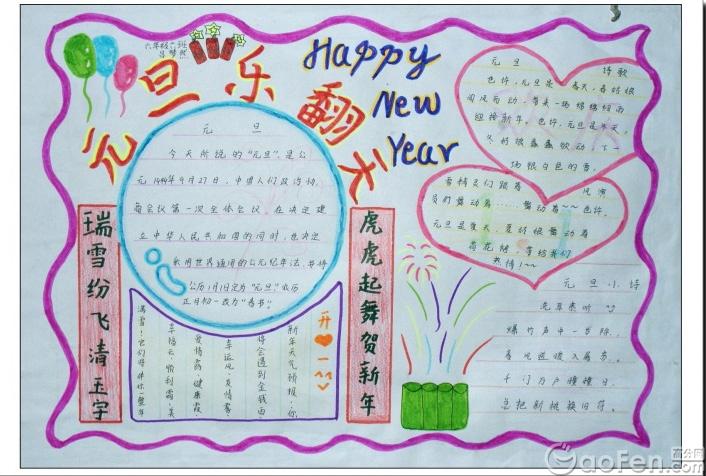 六年级六班
吕梦然
元旦乐翻天
Happy
New
Year
元 旦
今天所说的"元旦"是公
元1949年9月27日,中国人们政治协
商会议第一次全体会议,在决定建
立中华人民共和国的同时,也决定
采用世界通用的公元纪年法,并将
公历1月1日定为"元旦"农历
正月初一改为"春节"
瑞雪纷飞清玉宇
虎虎起舞贺新年
开心一
新年天气预报:你
将会遇到金钱雨
幸运风、友情雾
爱情露、健康霞
幸福云、顺利霜、美
满雪!它们将伴你一整年
元旦 诗歌
也许,元旦是春天,春姑娘
闻风而动,带来一场绵绵细雨
迎接新年,也许,元旦是冬天,
冬姑娘蠢蠢欲动,下一
场银白色的雪,
雪精灵们跟着 风滴
舞动着……舞动着~~也许,
元旦是夏天,夏姑娘舞动着
荷花裙,带给我们
热情!~~
元旦小诗
爆竹声中一岁除,
春风送暖入屠苏。
千门万户曈曈日,
总把新桃换旧符。
GaoFen.com
高分网